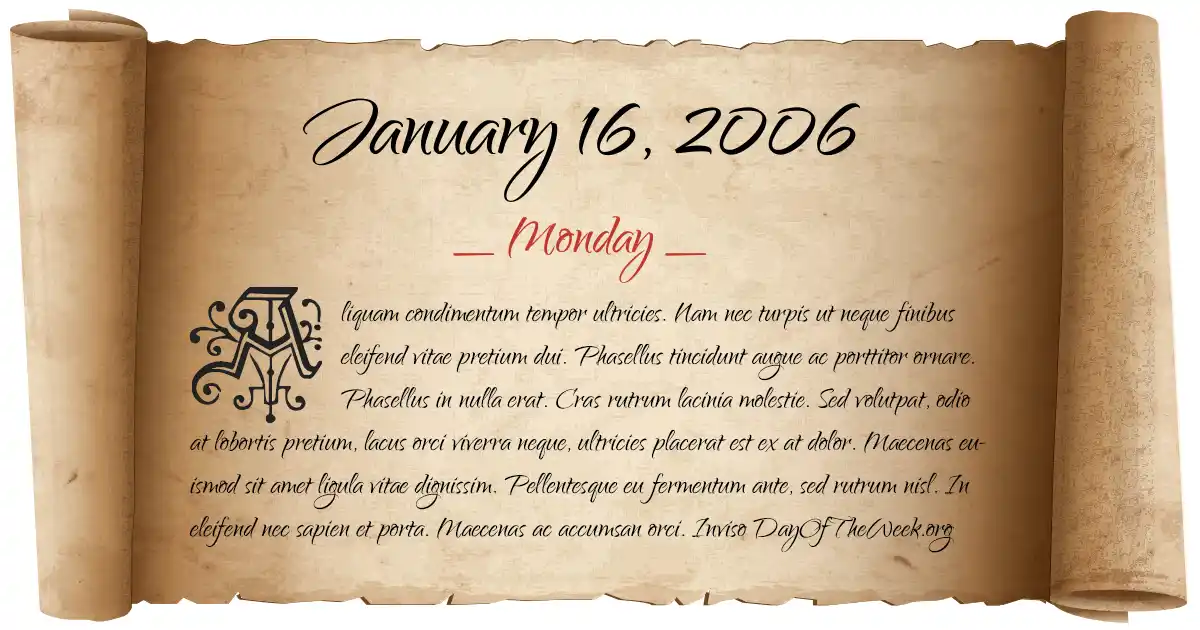 January 16, 2006
— Monday —
Aliquam condimentum tempor ultricies. Nam nec turpis ut neque finibus
eleifend vitae pretium dui. Phasellus tincidunt augue ac porttitor ornare.
Phasellus in nulla erat. Cras rutrum lacinia molestie. Sed volutpat, odio
at lobortis pretium, lacus orci viverra neque, ultricies placerat est ex at dolor. Maecenas eu-
ismod sit amet ligula vitae dignissim. Pellentesque eu fermentum ante, sed rutrum nisl. In
eleifend nec sapien et porta. Maecenas ac accumsan orci. Inviso DayOfTheWeek.org